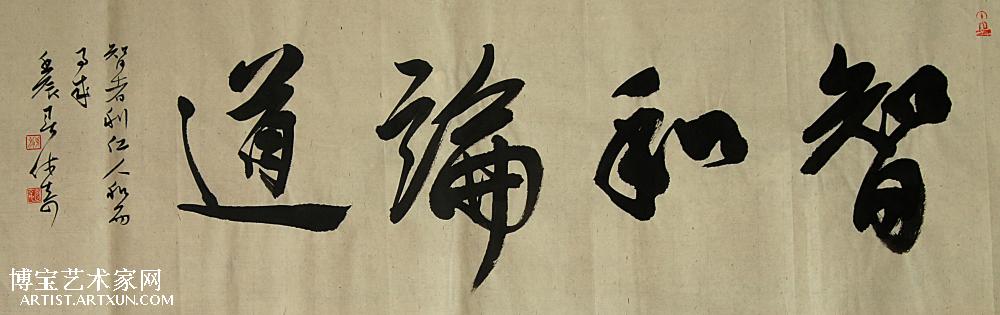 智和論道
智者利仁人和而
事成
壬辰春
博宝艺术家网
ARTIST.ARTXUN.COM